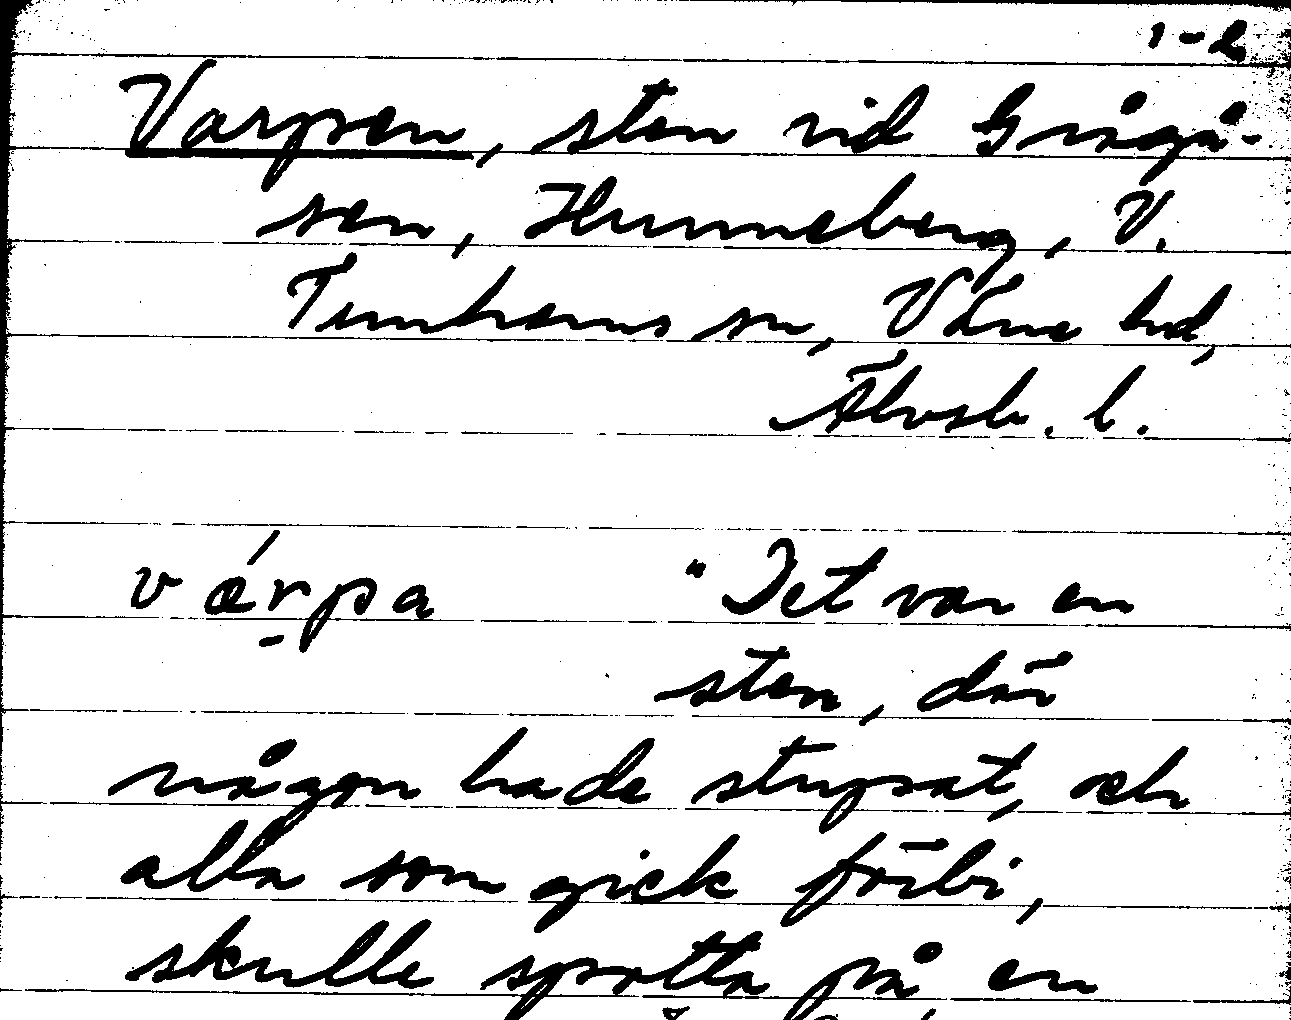 1-2
Varpen, sten vid Grågå-
sen, Hunneberg, V.
Tunhems sn, Väne hd,
Älvsb. l.
værpa "Det var en
sten, där
någon hade stupat, och
alla som gick förbi,
skulle spotta på en